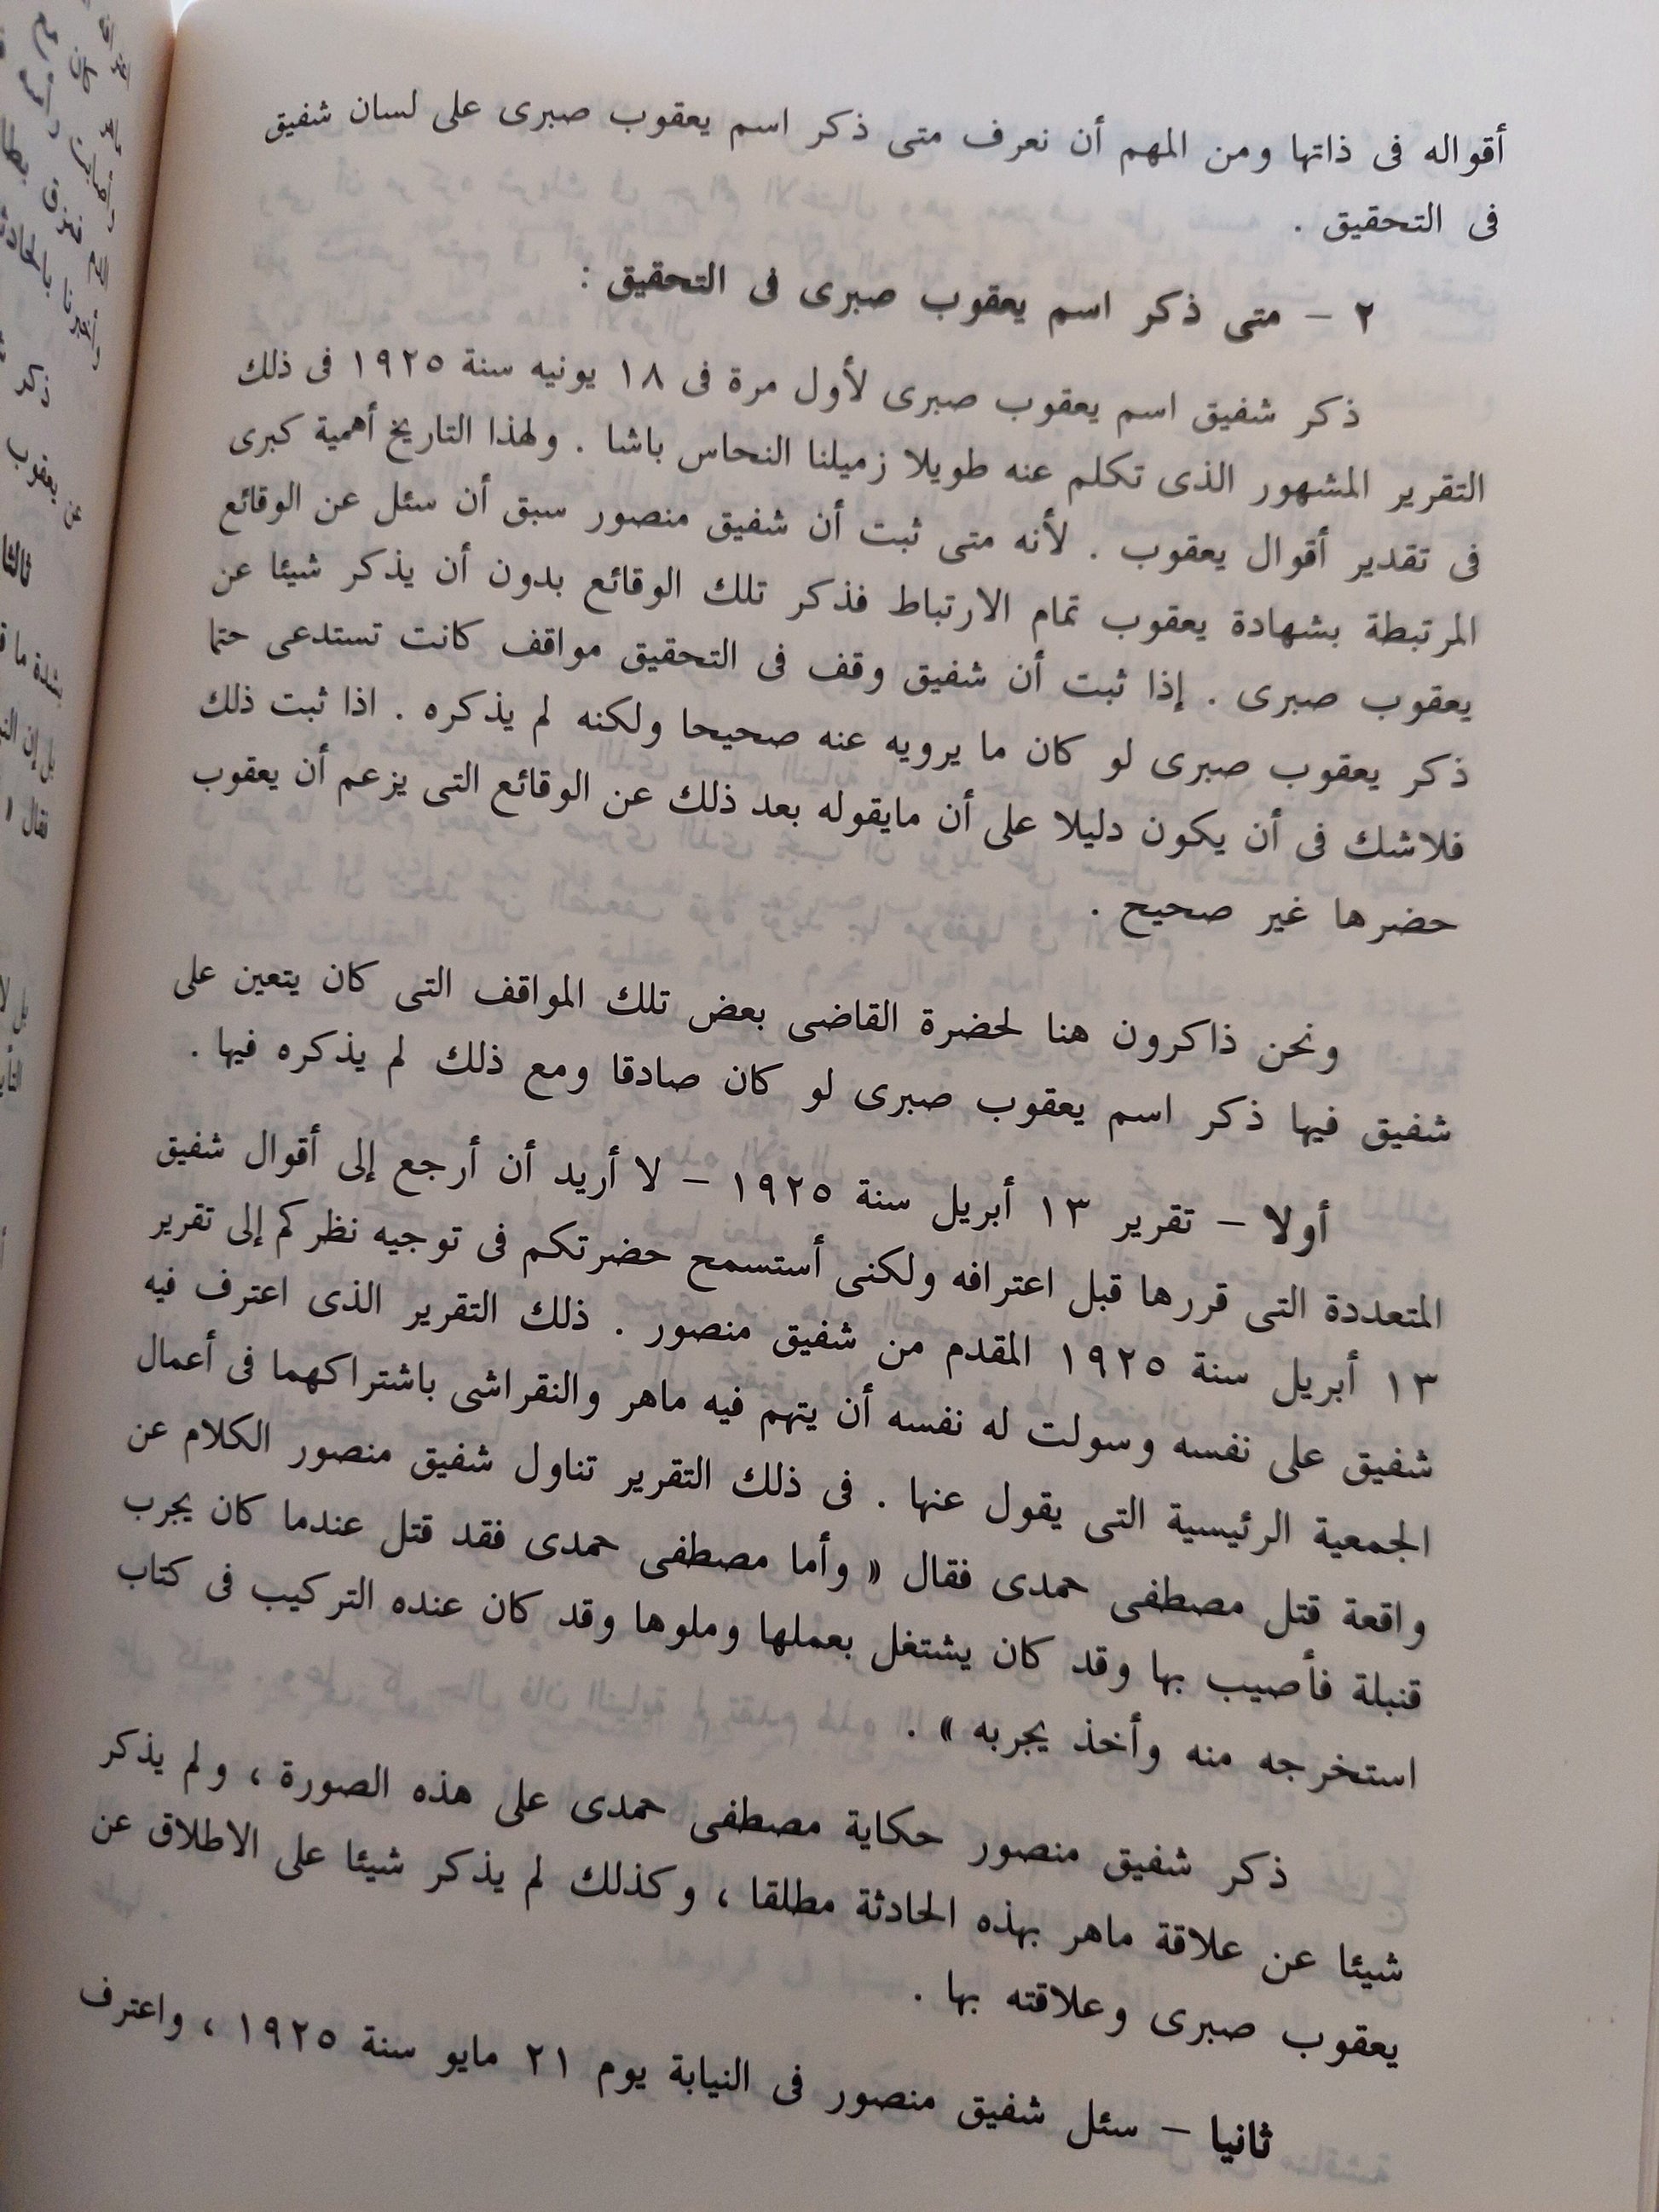 أقواله فى ذاتها ومن المهم أن نعرف متى ذكر اسم يعقوب صبرى على لسان شفيق
فى التحقيق .
٢ – متى ذكر اسم يعقوب صبرى فى التحقيق :
ذكر شفيق اسم يعقوب صبرى لأول مرة فى ١٨ يونيه سنة ١٩٢٥ فى ذلك
التقرير المشهور الذى تكلم عنه طويلا زميلنا النحاس باشا . ولهذا التاريخ أهمية كبرى
فى تقدير أقوال يعقوب . لأنه متى ثبت أن شفيق منصور سبق أن سئل عن الوقائع
المرتبطة بشهادة يعقوب تمام الارتباط فذكر تلك الوقائع بدون أن يذكر شيئا عن
يعقوب صبرى . إذا ثبت أن شفيق وقف فى التحقيق مواقف كانت تستدعى حتما
ذكر يعقوب صبرى لو كان ما يرويه عنه صحيحا ولكنه لم يذكره . اذا ثبت ذلك
فلاشك فى أن يكون دليلا على أن مايقوله بعد ذلك عن الوقائع التى يزعم أن يعقوب
حضرها غير صحيح .
ونحن ذاكرون هنا لحضرة القاضى بعض تلك المواقف التى كان يتعين على
شفيق فيها ذكر اسم يعقوب صبرى لو كان صادقا ومع ذلك لم يذكره فيها .
أولا – تقرير ١٣ أبريل سنة ١٩٢٥ – لا أريد أن أرجع إلى أقوال شفيق
المتعددة التى قررها قبل اعترافه ولكنى أستسمح حضرتكم فى توجيه نظركم إلى تقرير
١٣ أبريل سنة ١٩٢٥ المقدم من شفيق منصور . ذلك التقرير الذى اعترف فيه
شفيق على نفسه وسولت له نفسه أن يتهم فيه ماهر والنقراشى باشتراكهما فى أعمال
الجمعية الرئيسية التى يقول عنها . فى ذلك التقرير تناول شفيق منصور الكلام عن
واقعة قتل مصطفى حمدى فقال « وأما مصطفى حمدى فقد قتل عندما كان يجرب
قنبلة فأصيب بها وقد كان يشتغل بعملها وملوها وقد كان عنده التركيب فى كتاب
استخرجه منه وأخذ يجربه » .
ذكر شفيق منصور حكاية مصطفى حمدى على هذه الصورة ، ولم يذكر
شيئا عن علاقة ماهر بهذه الحادثة مطلقا ، وكذلك لم يذكر شيئا على الاطلاق عن
يعقوب صبرى وعلاقته بها .
ثانيا – سئل شفيق منصور فى النيابة يوم ٢١ مايو سنة ١٩٢٥ ، واعترف